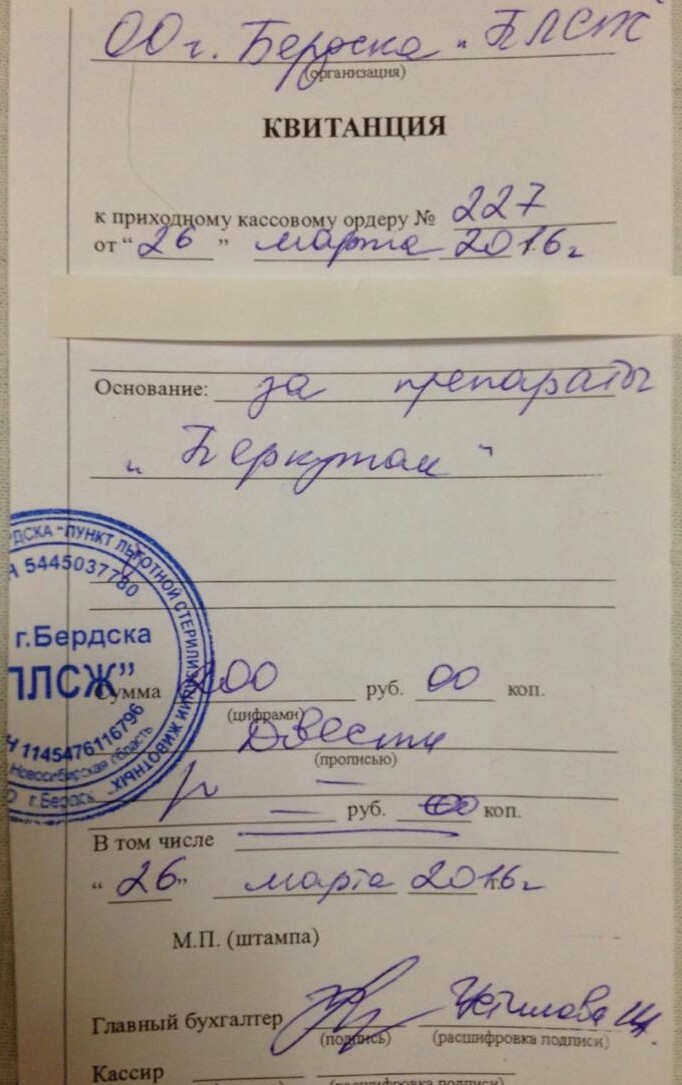 ОО г. Бердска "ПЛСЖ
(организация)
КВИТАНЦИЯ
к приходному кассовому ордеру № 227
от “26” марта 2016г
Основание: за препараты
"Беркутам"
РДСКА "ПУНКТ ЛЬГОТНОЙ СТЕРИЛИЗАЦИИ ЖИВОТНЫХ"
Н 5445037780
г.Бердска
ПЛСЖ”
Н 1145476116796
Новосибирская область
г.Бердск
Сумма 200 руб. 00 коп.
(цифрами)
Двести
(прописью)
р —
— руб. 00 коп.
В том числе
“26” марта 2016г
М.П. (штампа)
Главный бухгалтер
(подпись) (расшифровка подписи)
Кассир
(расшифровка подписи)